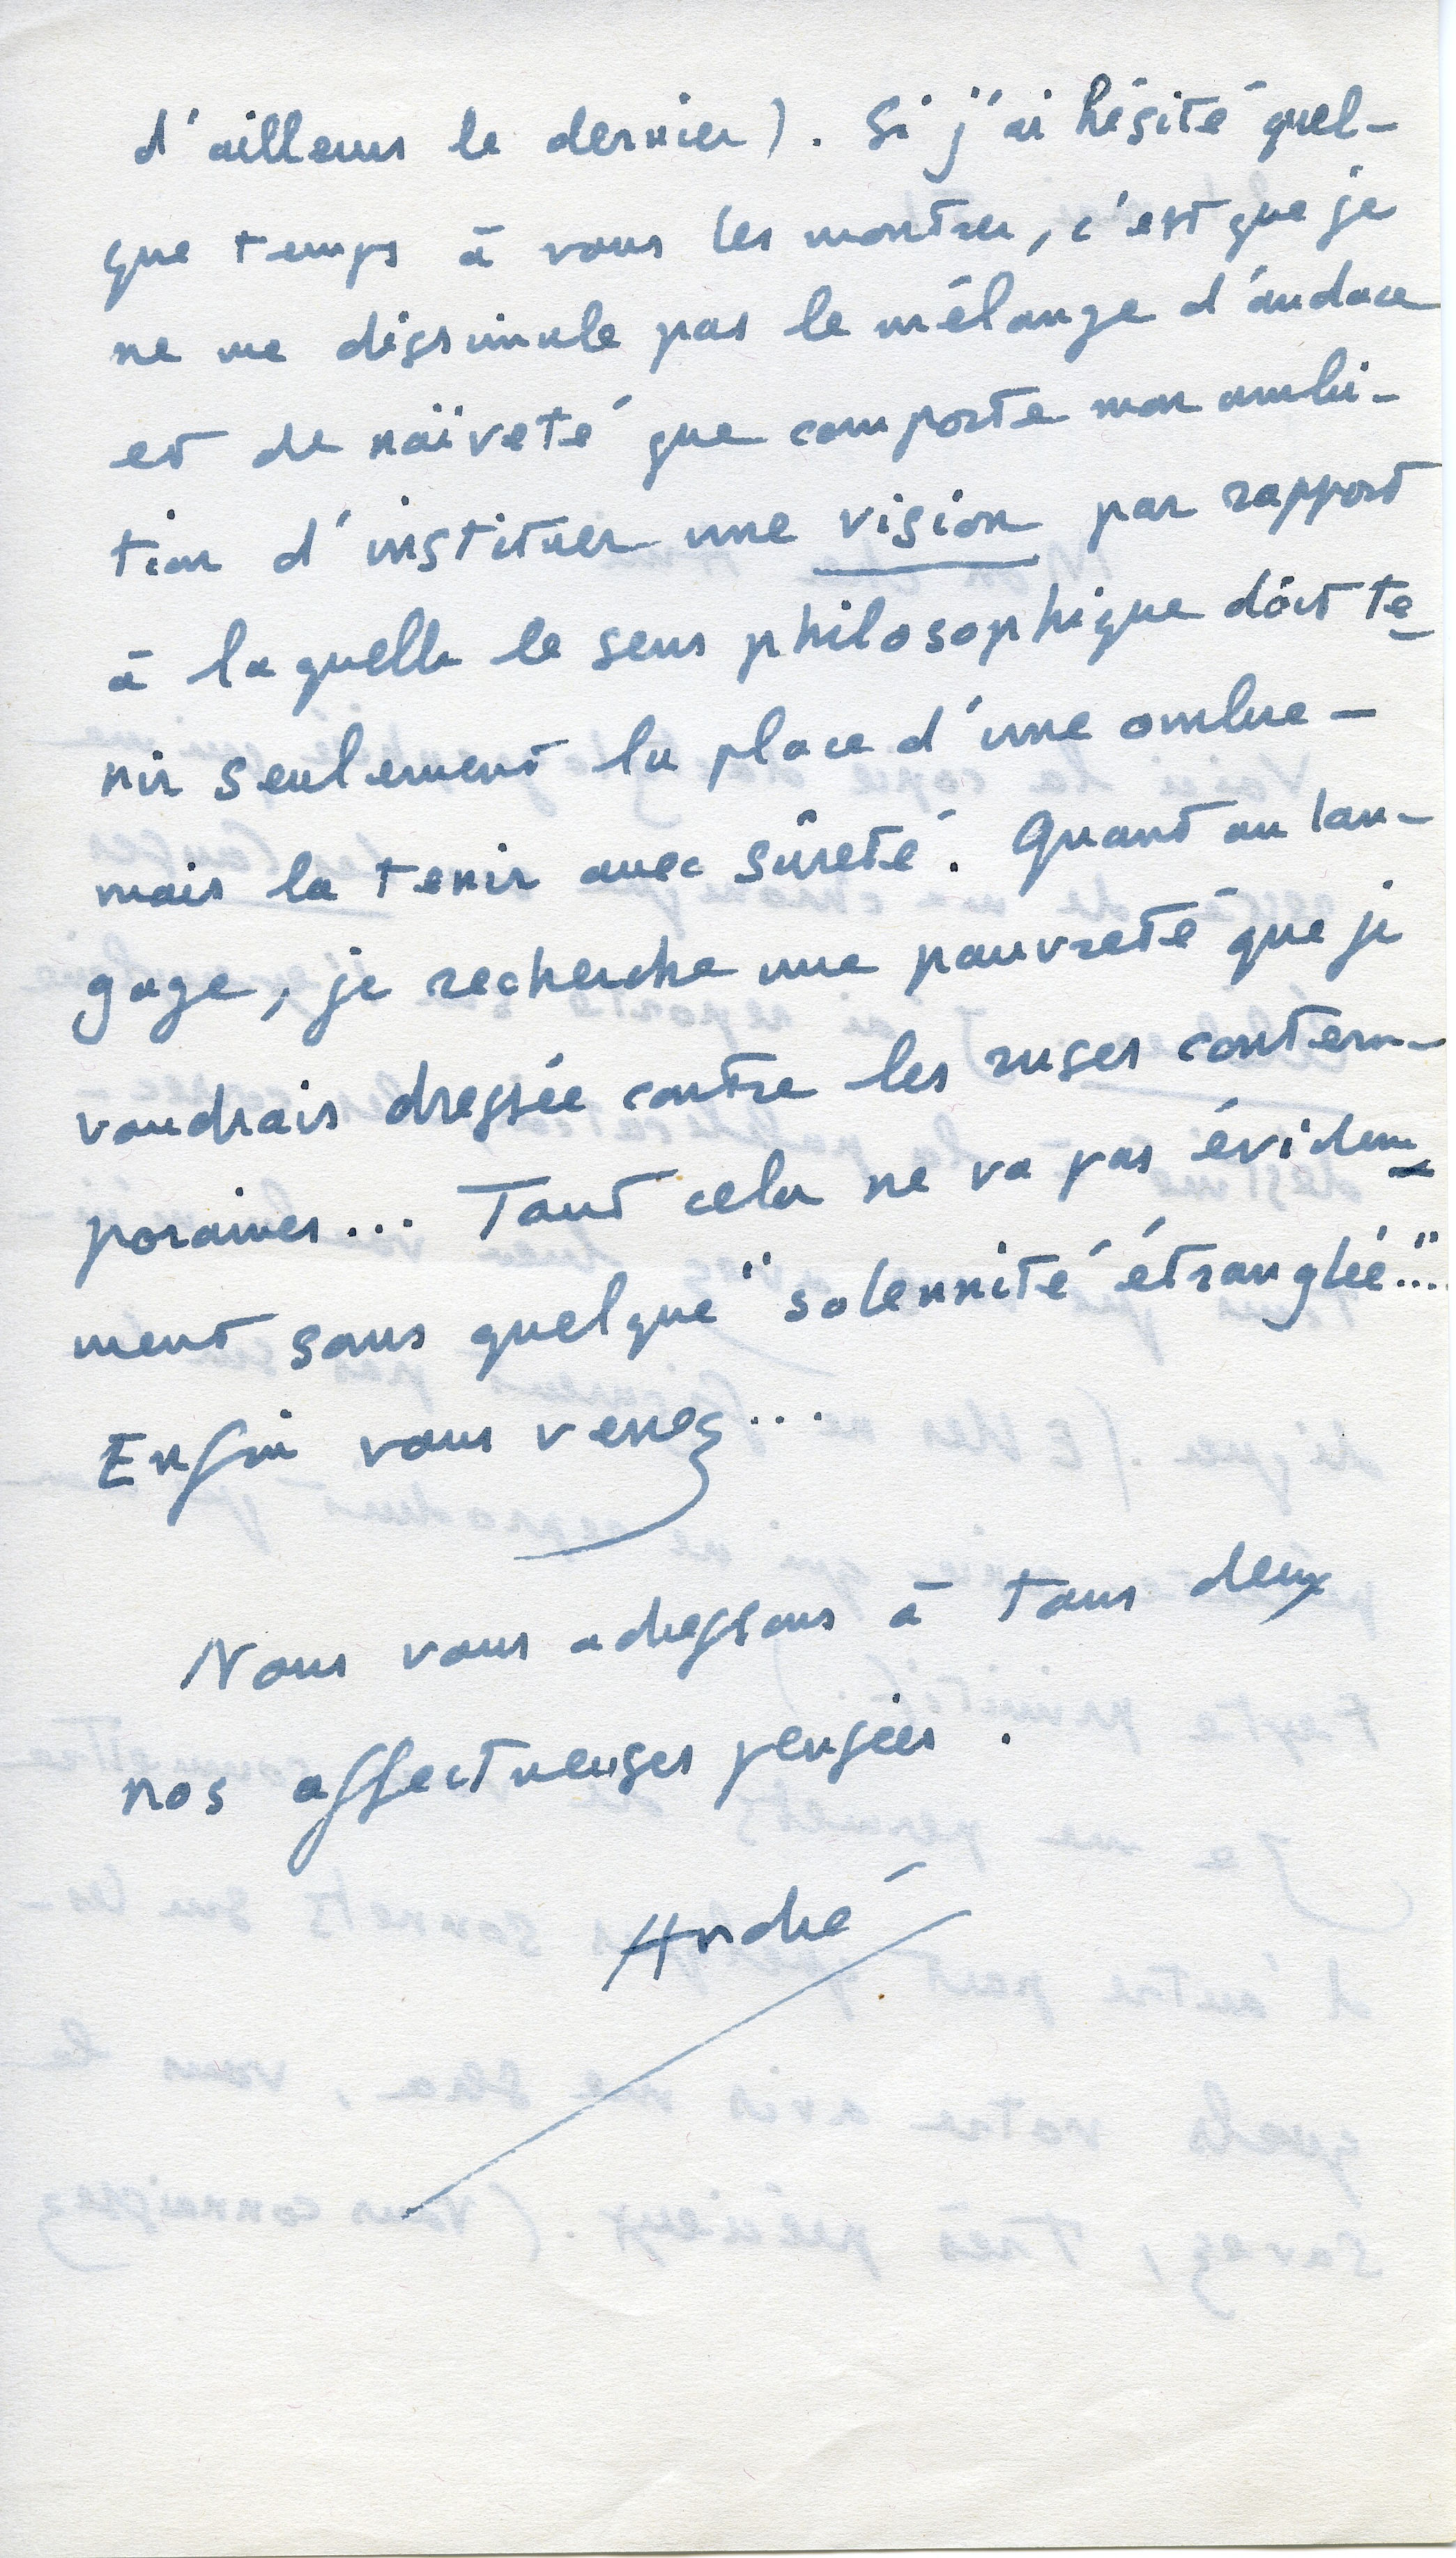 d'ailleurs le dernier). Si j'ai hésité quel-
que temps à vous les montrer, c'est que je
ne me dissimule pas le mélange d'audace
et de naïveté que comporte mon ambi-
tion d'instituer une vision par rapport
à laquelle le sens philosophique doit te
nir seulement la place d'une ombre -
mais la tenir avec sûreté. Quant au lan-
gage, je recherche une pauvreté que je
voudrais dressée contre les ruses contem-
poraines... Tout cela ne va pas évidem
ment sans quelque "solennité étranglée"...
Enfin vous verrez...
Nous vous adressons à tous deux
nos affectueuses pensées.
André